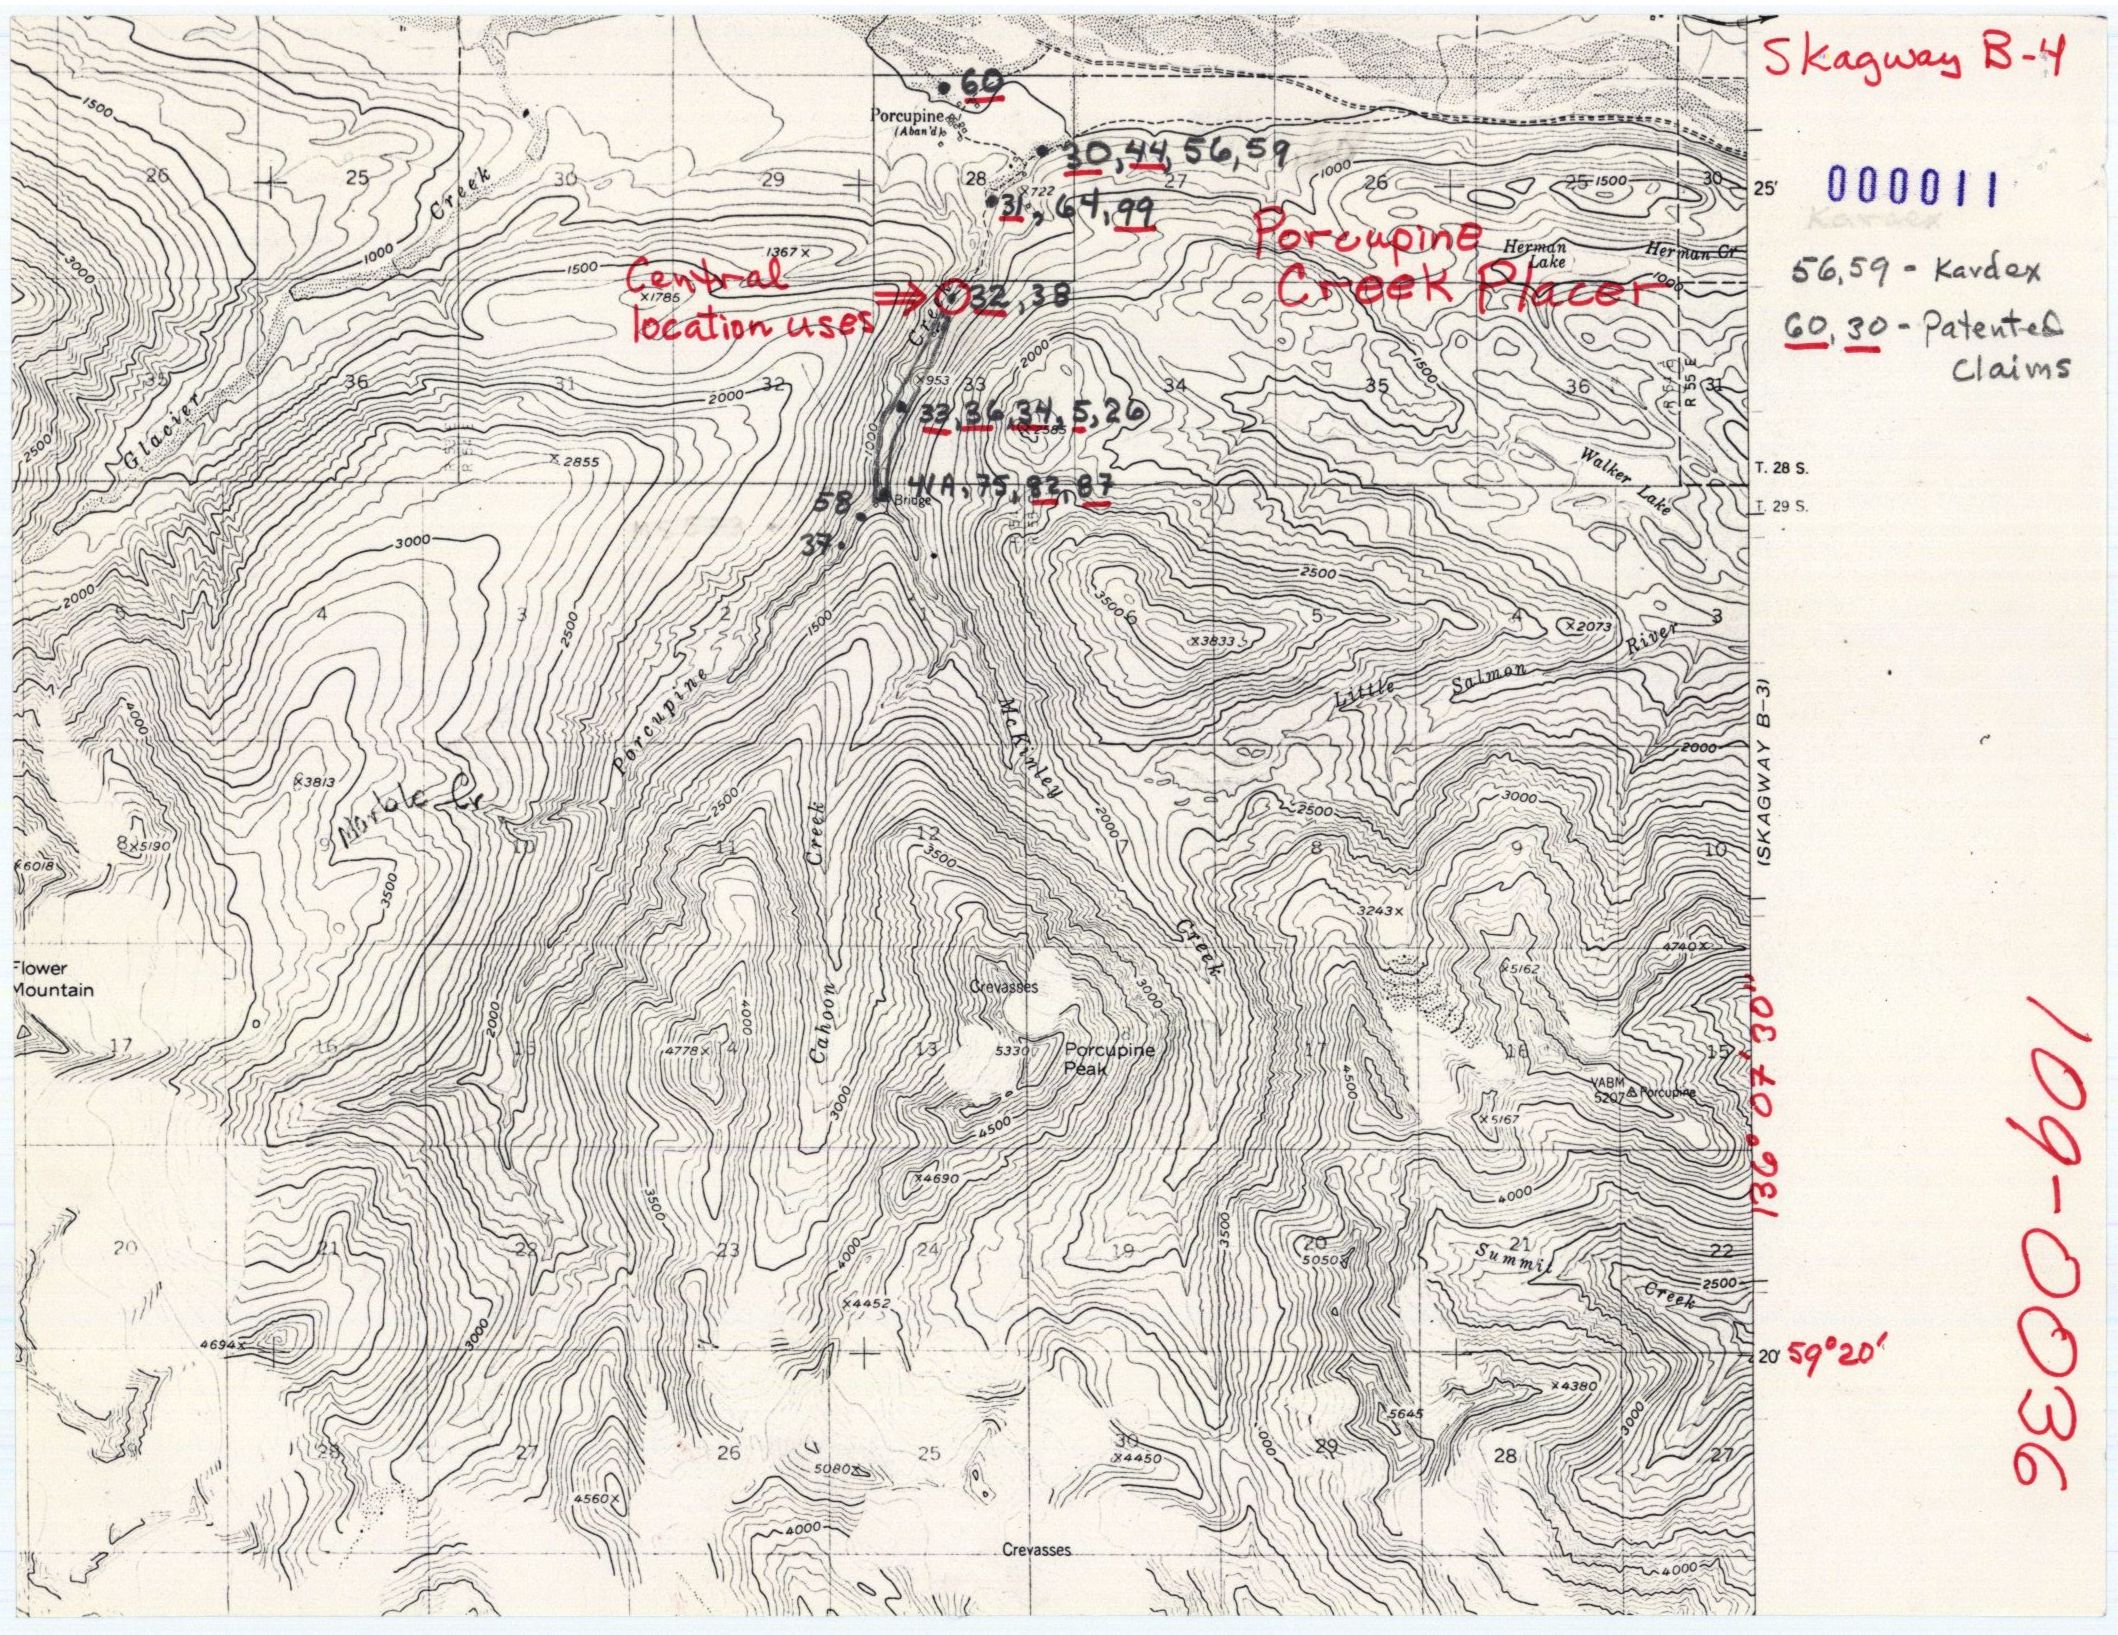 Skagway B-4
000011
Kardex
56, 59 - Kardex
60, 30 - Patented
Claims
60
Porcupine
(Aban'd)
30, 44, 56, 59
1500
26
25
30
29
28
27
26
25
1500
30
25'
1000
x722
31, 64, 99
Creek
Porcupine
Creek Placer
Herman
Lake
Herman Cr
1000
3000
1000
1367x
1500
Central
location uses
x1785
32, 38
Cre
1000
2000
1500
35
36
31
32
x953
33
34
35
36
R 55 E
31
2000
33, 36, 34, 5, 26
2585
Glacier
2500
x2855
1000
Walker Lake
T. 28 S.
T. 29 S.
41A, 75, 82, 87
Bridge
58
37
3000
2500
2000
5
4
3
2
1
3500
6
5
4
x2073
3
2500
1500
x3833
Little Salmon River
(SKAGWAY B-3)
Porcupine
McKinley
4000
2000
x3813
Marble Cr
2500
3000
2500
2000
8
x5190
9
10
11
12
7
8
9
10
x6018
3500
Creek
3500
3243x
Creek
4740x
x5162
Flower
Mountain
Crevasses
3000
2000
4000
136° 07' 30"
17
16
15
4778x
14
Cahoon
13
5330
Porcupine
Peak
17
16
15
4500
VABM
5207
Porcupine
3000
4500
x5167
109-0036
x4690
4000
3500
3500
20
21
22
23
24
19
20
21
22
5050
Summit
Creek
2500
4000
x4452
4694x
3000
20'
59°20'
x4380
5645
3000
29
28
27
26
25
30
29
28
27
5080x
x4450
4560x
4000
Crevasses
4000